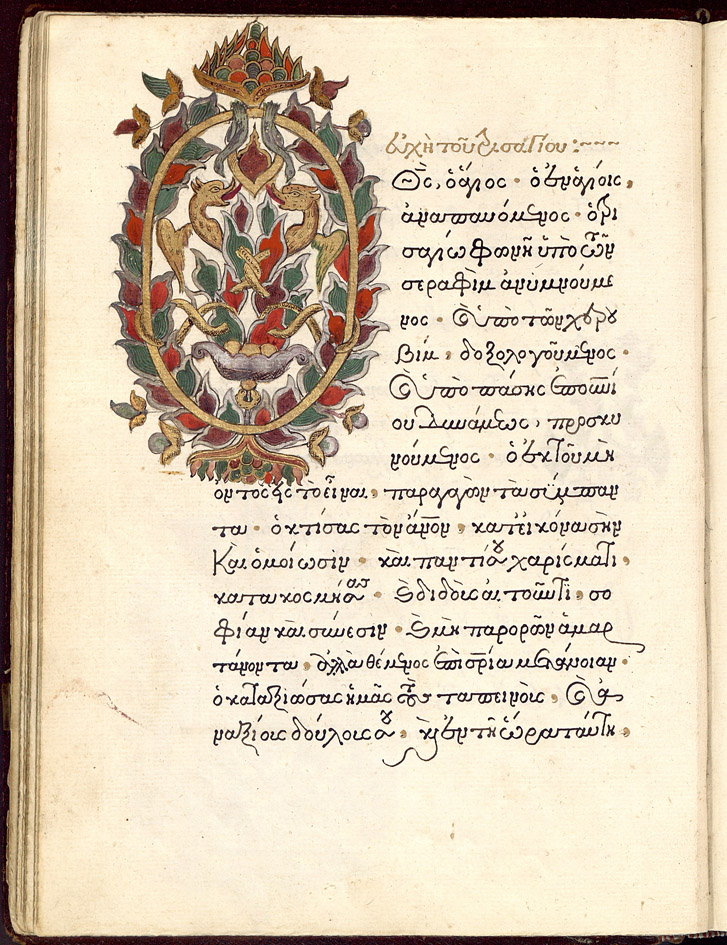 εὐχὴ τοῦ τρισαγίου :~~~
Θς, ὁ ἅγιος · ὁ ἐν ἁγίοις,
ἀναπαυόμενος · ὁ τρι
σαγίω φωνῆ ὑπὸ τῶν
σεραφὶμ ἀνυμνούμε
νος · καὶ ὑπὸ τῶν χερου
βὶμ, δοξολογούμενος ·
καὶ ὑπὸ πάσης ἐπουνί
ου δυνάμεως, προσκυ
νούμενος · ὁ ἐκ τοῦ μὴ
ὄντος εἰς τὸ εἶναι, παραγαγὼν τὰ σύμπαν
τα · ὁ κτίσας τὸν ἄνον, κατ' εἰκόνα σὴν
Καὶ ὁμοίωσιν · καὶ παντί σου χαρίσματι,
κατακοσμήσας · ὁ διδοὺς αἰτοῦντι, σο
φίαν καὶ σύνεσιν · καὶ μὴ παρορῶν ἁμαρ
τάνοντα, ἀλλὰ θέμενος ἐπὶ σρία μετάνοιαν ·
ὁ καταξιώσας ἡμᾶς τοὺς ταπεινοὺς, καὶ ἀ
ναξίους δούλους σου, καὶ ἐν τῆ ὥρα ταύτη,